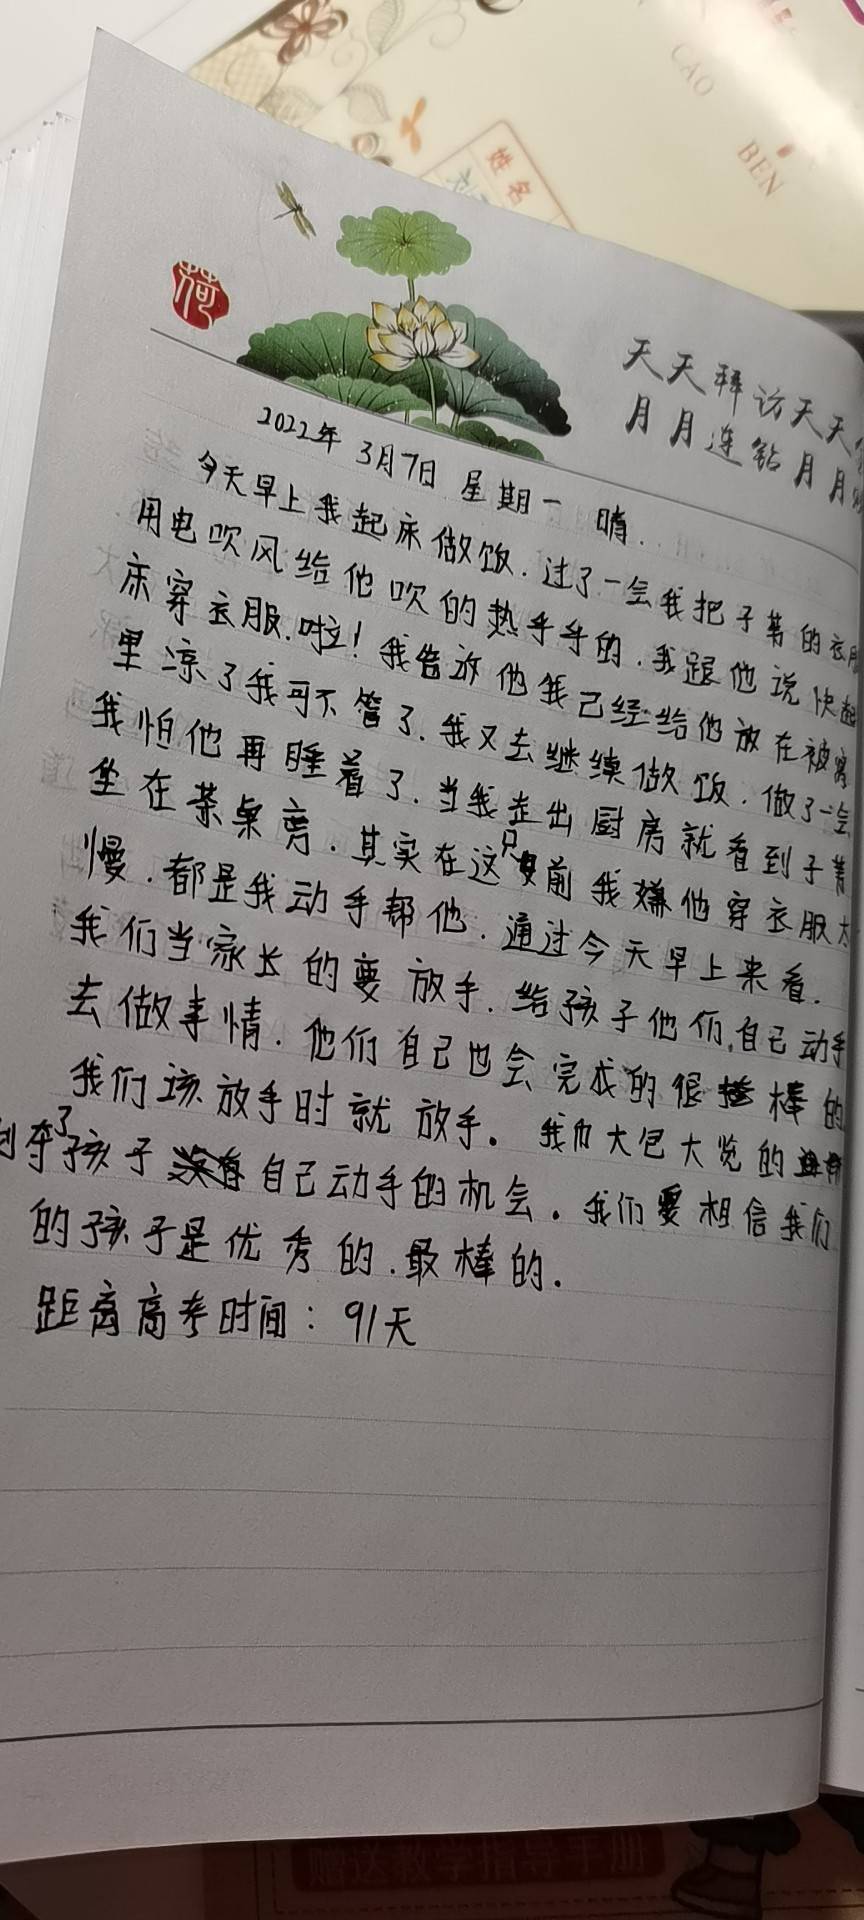 CAO
BEN
姓名
荷
天天拜访天天
月月连钻月月
2022年3月7日 星期一 晴.
今天早上我起床做饭.过了一会我把子菁的衣服
用电吹风给他吹的热乎乎的.我跟他说快起
床穿衣服.啦!我告放他我己经给他放在被窝
里凉了我可不管了.我又去继续做饭.做了一会
我怕他再睡着了.当我走出厨房就看到子菁
坐在茶桌旁.其实在这之前我嫌他穿衣服太
慢.都是我动手帮他.通过今天早上来看.
我们当家长的要放手.给孩子他们自己动手
去做事情.他们自己也会完成的很棒的
我们该放手时就放手。我们大包大览的
剥夺了孩子自己动手的机会。我们要相信我们
的孩子是优秀的.最棒的.
距离高考时间:91天
赠送教学指导手册